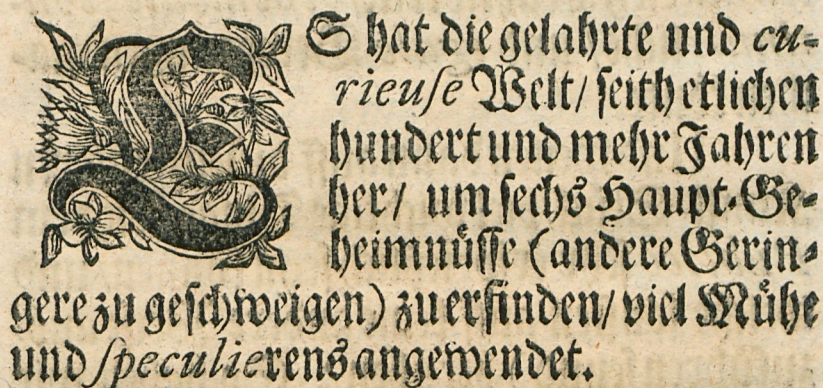 ES hat die gelahrte und cu-
rieuſe Welt/ ſeith etlichen
hundert und mehr Jahren
her/ um ſechs Haupt-Ge-
heimnuͤſſe (andere Gerin-
gere zu geſchweigen) zu erfinden/ viel Muͤhe
und ſpeculierens angewendet.